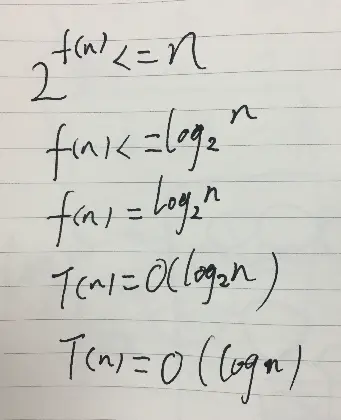 2^f(n) <= n
f(n) <= log₂n
f(n) = log₂n
T(n) = O(log₂n)
T(n) = O(logn)